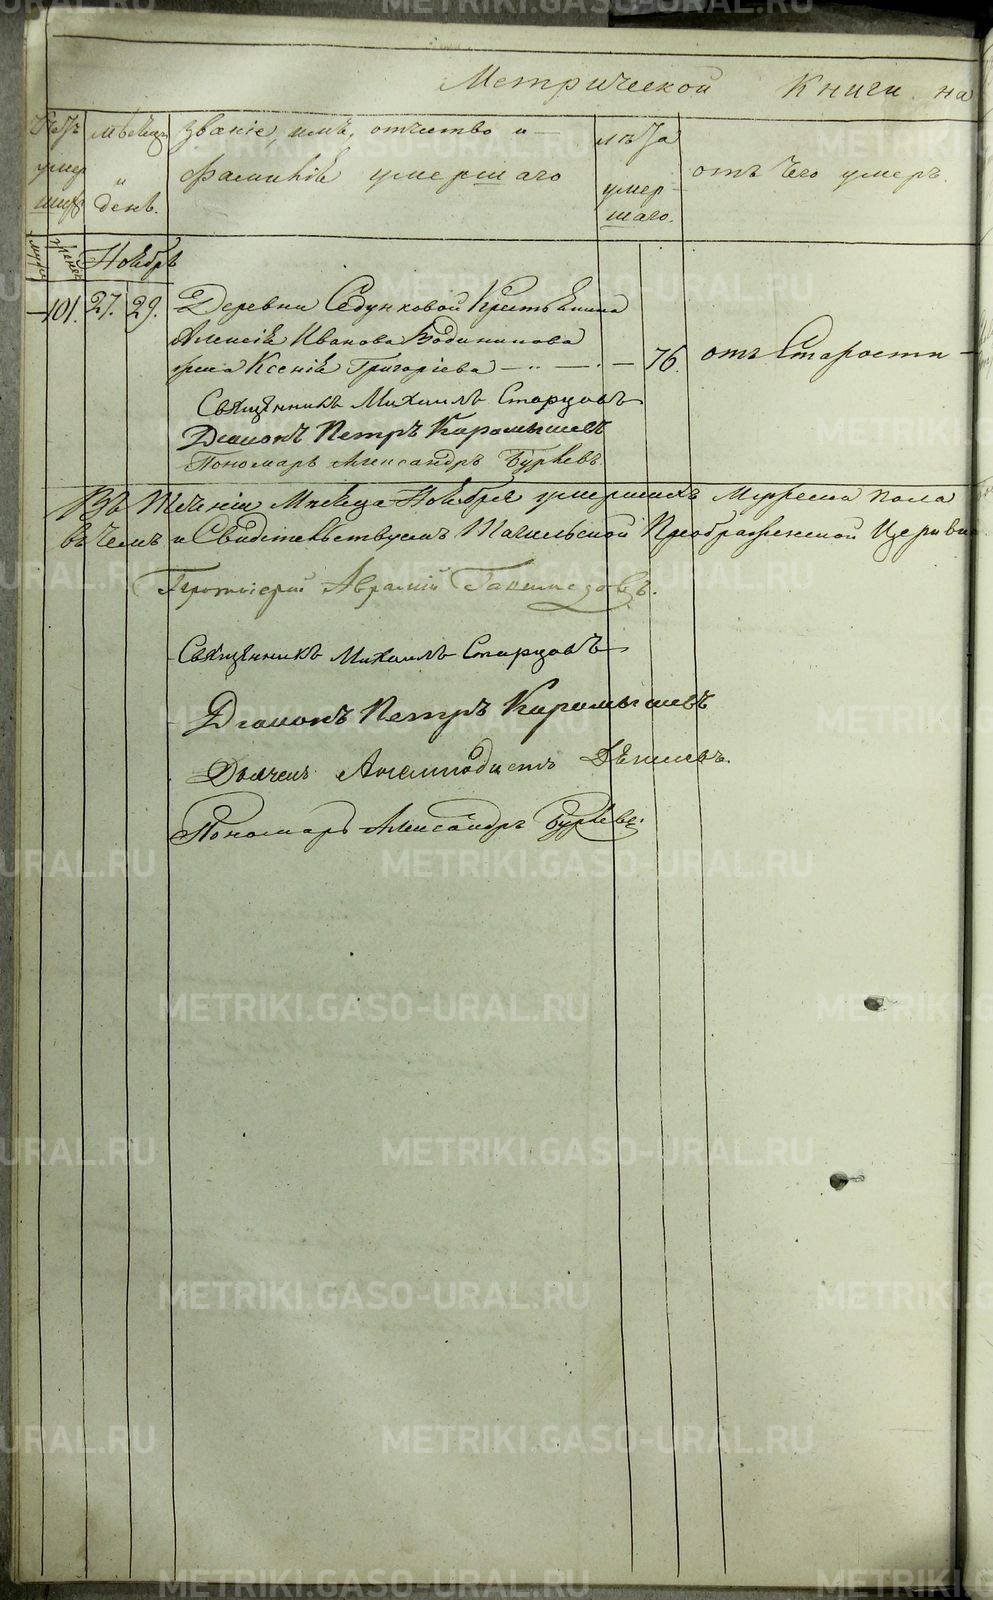 Метрической Книги на
Счетъ умершихъ
мѣсецъ и день.
Званіе, имѣ, отчество и фамиліѣ умершаго
лѣта умершаго.
отъ Чего умеръ.
женск
Ноября
101. 27. 29. Деревни Седунковой Крестьянина
Алексѣя Иванова Водиникова
жена Ксеніѣ Григоріева — 76. отъ Старости —
Священникъ Михаилъ Старцовъ
Діаконъ Петръ Карамышевъ
Пономарь Александръ
Въ Теченіи Месеца Ноября умершихъ Мужеска пола
въ Чемъ и Свидетельствуемъ Тагильской Преображенской Церкви
Протоіерей Аврамій Ганимедовъ.
Священникъ Михаилъ Старцовъ
Діаконъ Петръ Карамышевъ
Дьячекъ Анемподистъ
Пономарь Александръ
METRIKI.GASO-URAL.RU